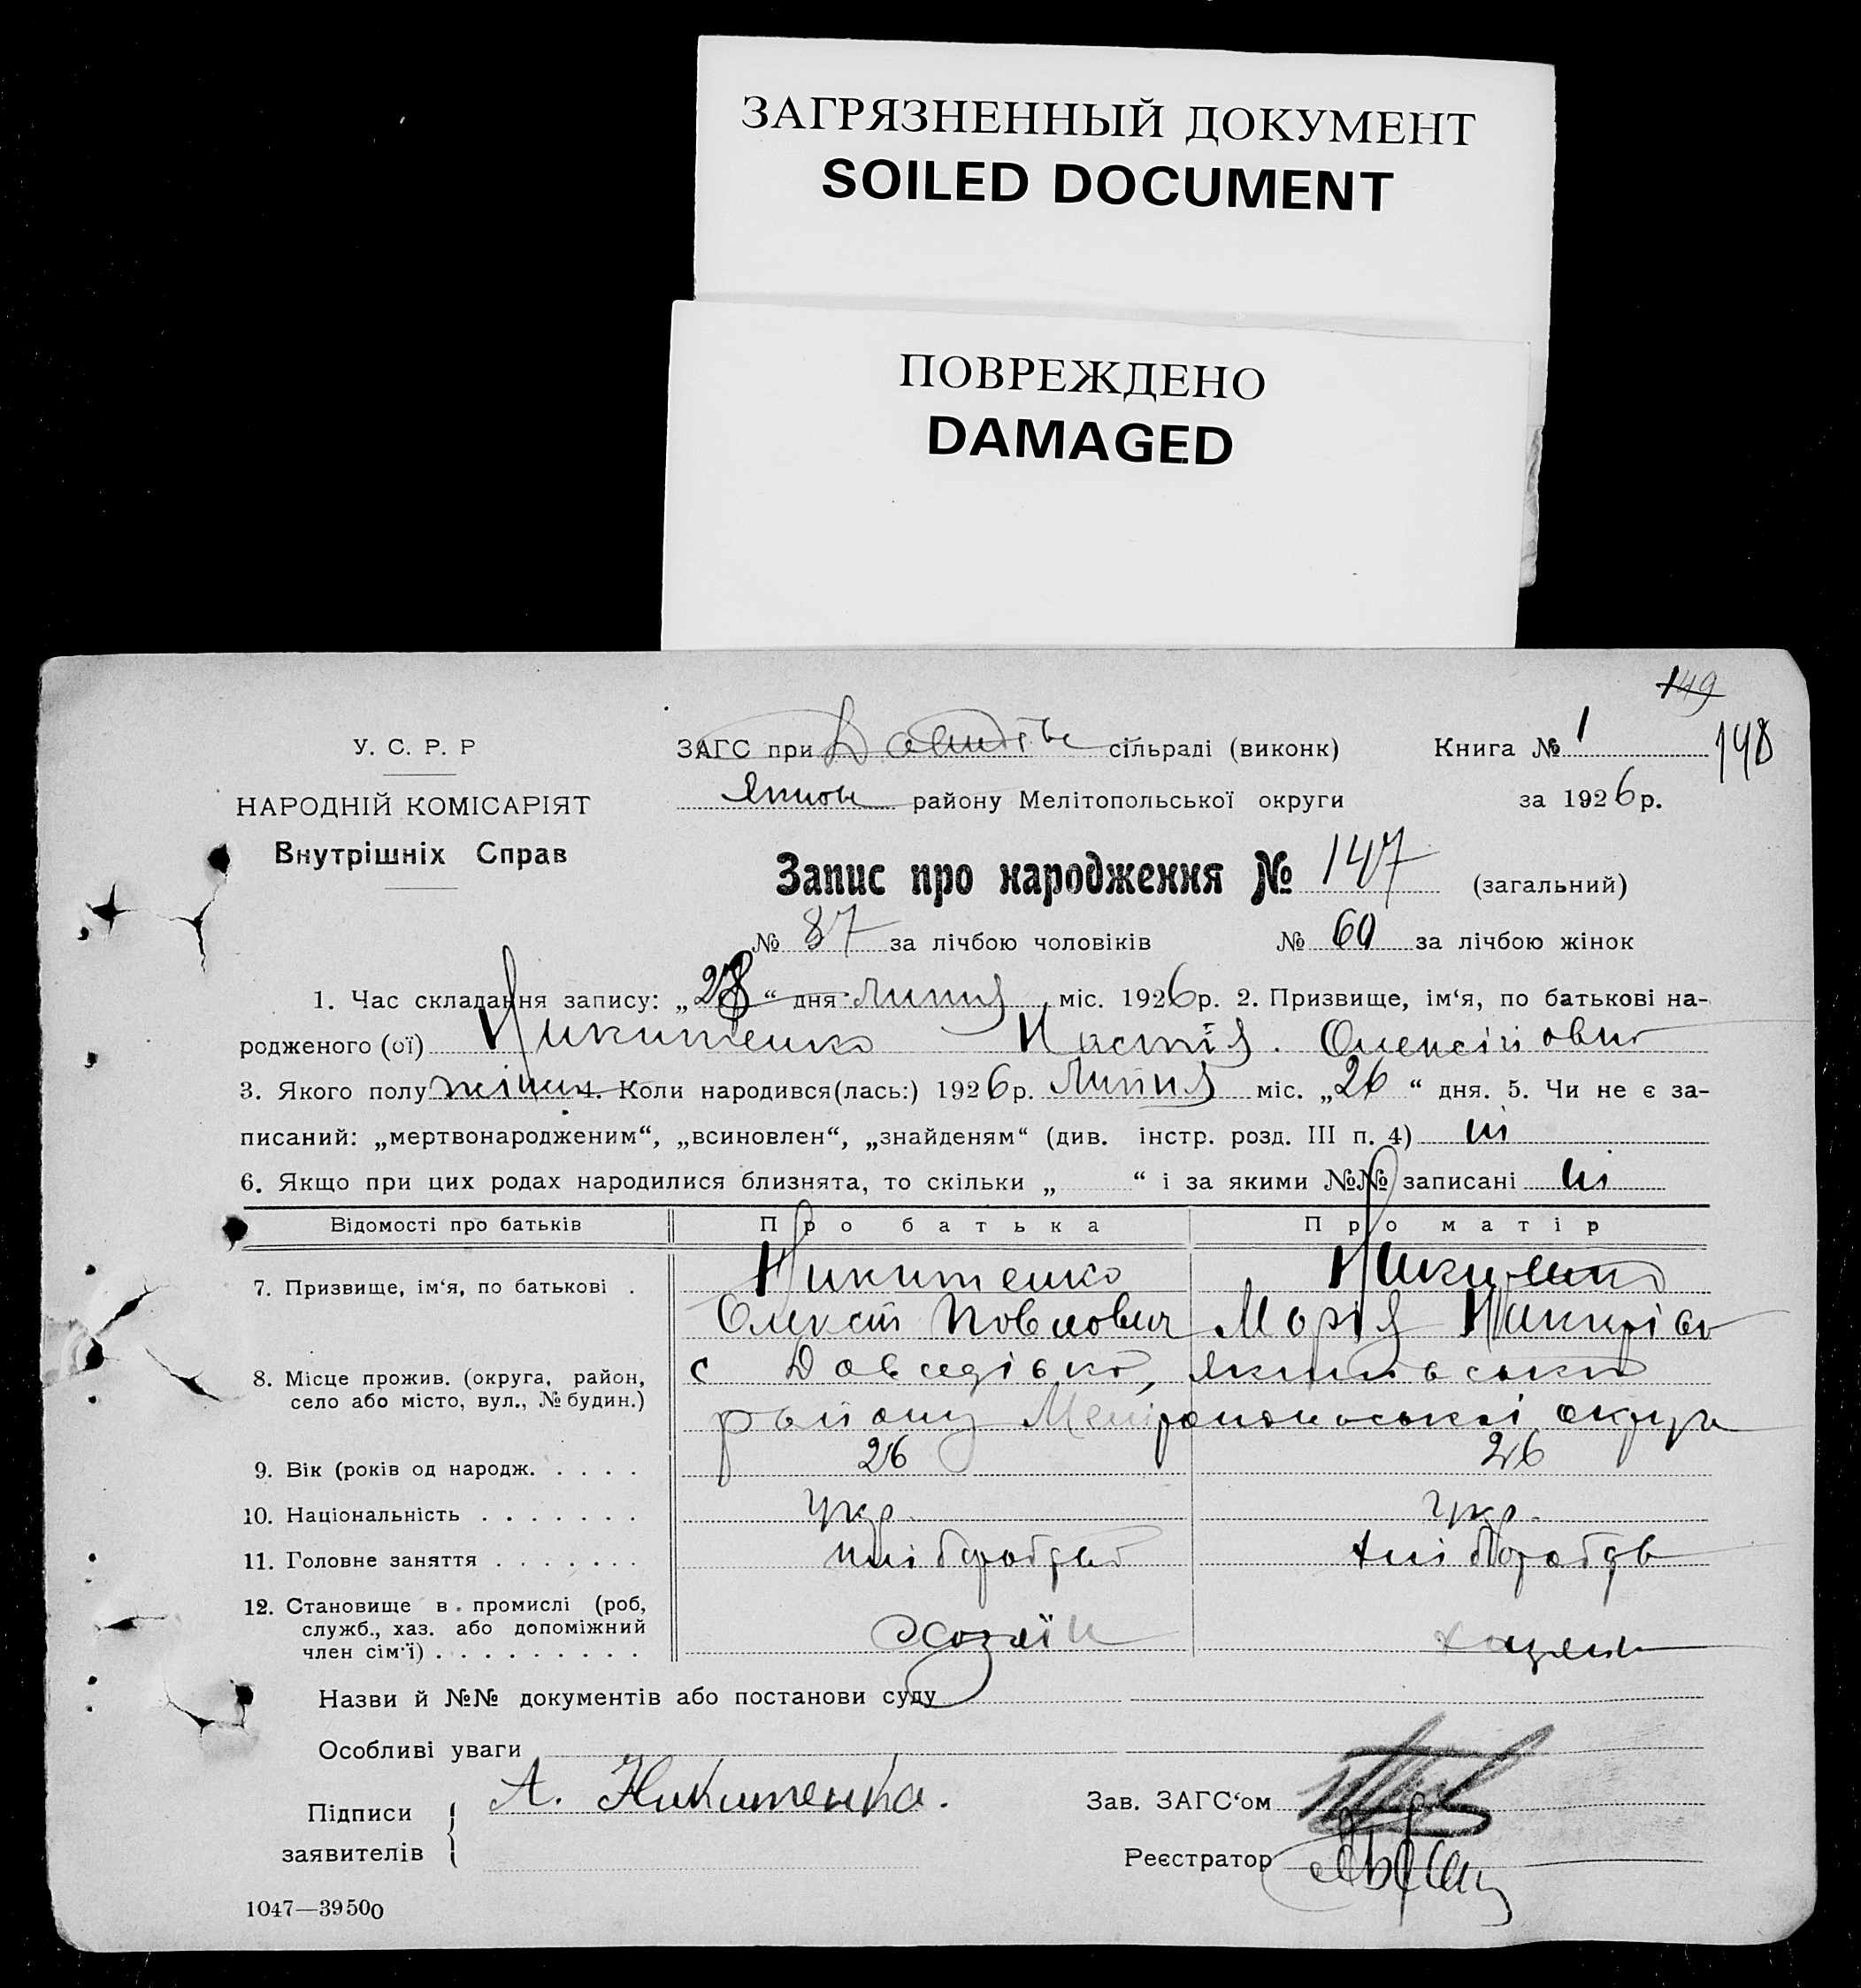 ЗАГРЯЗНЕННЫЙ ДОКУМЕНТ
SOILED DOCUMENT
ПОВРЕЖДЕНО
DAMAGED
149
148
У. С. Р. Р
НАРОДНІЙ КОМІСАРІЯТ
Внутрішніх Справ
ЗАГС при сільраді (виконк) Книга № 1
Яким району Мелітопольської округи за 1926 р.
Запис про народження № 147 (загальний)
№ 87 за лічбою чоловіків № 60 за лічбою жінок
1. Час складання запису: „28“ дня липня міс. 1926 р. 2. Призвище, ім‘я, по батькові на-
родженого (ої) Никитенко Настія Олексійовна
3. Якого полу жіноч 4. Коли народився(лась:) 1926 р. Липня міс. „26“ дня. 5. Чи не є за-
писаний: „мертвонародженим“, „всиновлен“, „знайденям“ (див. інстр. розд. III п. 4) ні
6. Якщо при цих родах народилися близнята, то скільки „ “ і за якими №№ записані ні
Відомості про батьків Про батька Про матір
7. Призвище, ім‘я, по батькові . Никитенко Никитенко
Олексій Павлович Марія
8. Місце прожив. (округа, район,
село або місто, вул., № будин.)
с Давидівка, Якимівськи
району Мелітопольської округи
9. Вік (років од народж. . . . . 26 26
10. Національність . . . . . . . укр. укр.
11. Головне заняття . . . . . . . хліборобст хлібороб
12. Становище в промислі (роб,
служб., хаз. або допоміжний
член сім‘ї) . . . . . . . . . Хозяїн
Назви й №№ документів або постанови суду
Особливі уваги
Підписи
заявителів
А. Никитенко.
Зав. ЗАГС‘ом
Реєстратор
1047—39500